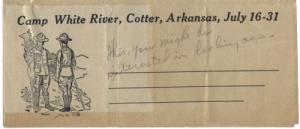 Camp White River, Cotter, Arkansas, July 16-31
This, you might be
interested in looking over.